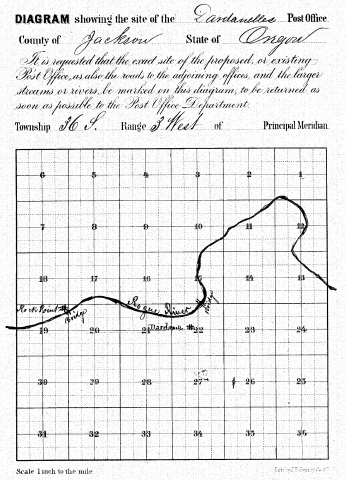 DIAGRAM showing the site of the Dardanelles Post Office.
County of Jackson State of Oregon
It is requested that the exact site of the proposed, or existing
Post Office, as also the roads to the adjoining offices, and the larger
streams or rivers, be marked on this diagram, to be returned as
soon as possible to the Post Office Department.
Township 36 S. Range 3 West of Principal Meridian.
6 5 4 3 2 1
7 8 9 10 11 12
18 17 16 15 14 13
Rock Point Bridge Rogue River Bridge
19 20 21 22 23 24
Dardanelles
30 29 28 27 26 25
31 32 33 34 35 36
Scale 1 inch to the mile.